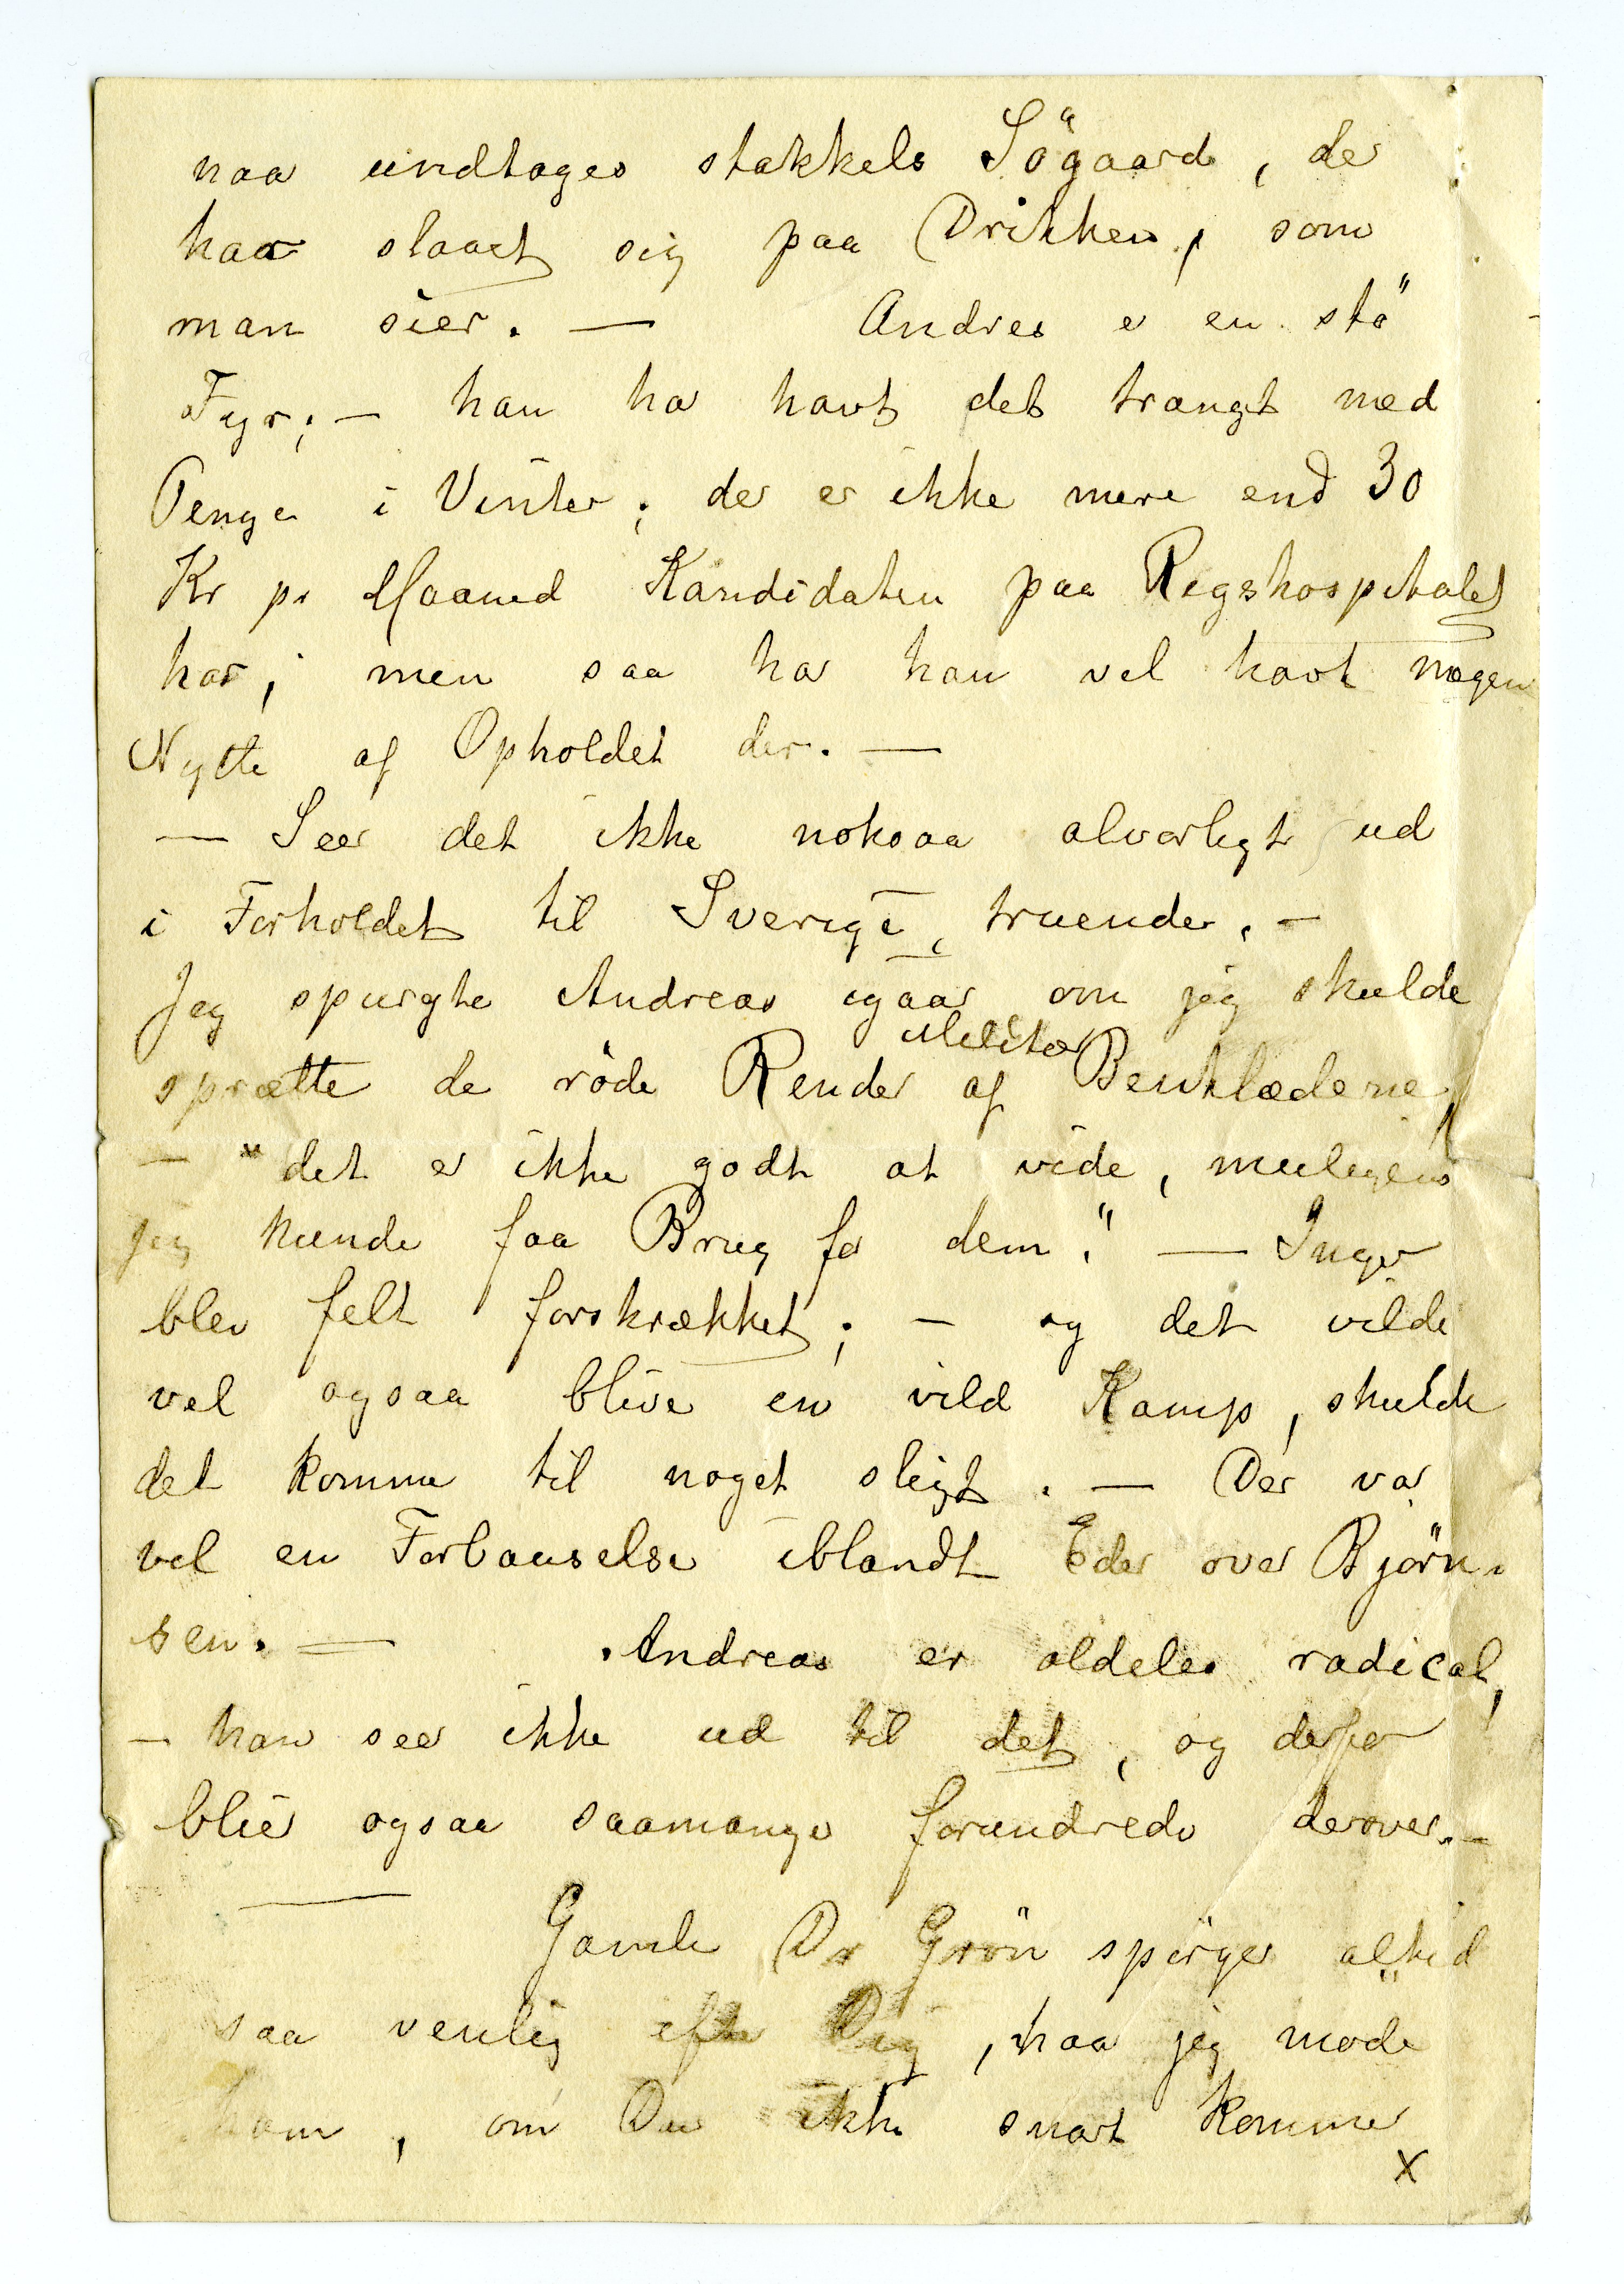 naa undtages stakkels Sögaard, der
har slaaet sig paa Drikken, som
man sier. — Andrea er en stö
Fyr; — han har havt det trangt med
Penge i Vinter; der er ikke mere end 30
Kr pr Maaned Kandidaten paa Rigshospitalet
har; men saa har han vel havt nogen
Nytte af Opholdet der. —
— Seer det ikke noksaa alvorligt ud
i Forholdet til Sverige, truende. —
Jeg spurgte Andreas igaar om jeg skulde
sprætte de röde Render af Militær Benklæderne,
— "det er ikke godt at vide, muligens
jeg kunde faa Brug for dem." — Inga
blev felt forskrækket; — og det vilde
vel ogsaa blive en vild Kamp, skulde
det komme til noget sligt. — Der var
vel en Forbauselse iblandt Eder over Björn-
sen. — Andreas er aldeles radical,
— han seer ikke ud til det, og derfor
blier ogsaa saamange forundrede derover. —
— Gamle Dr Grön spörger altid
saa venlig efter Dig, naar jeg möder
ham, om Du ikke snart kommer
x